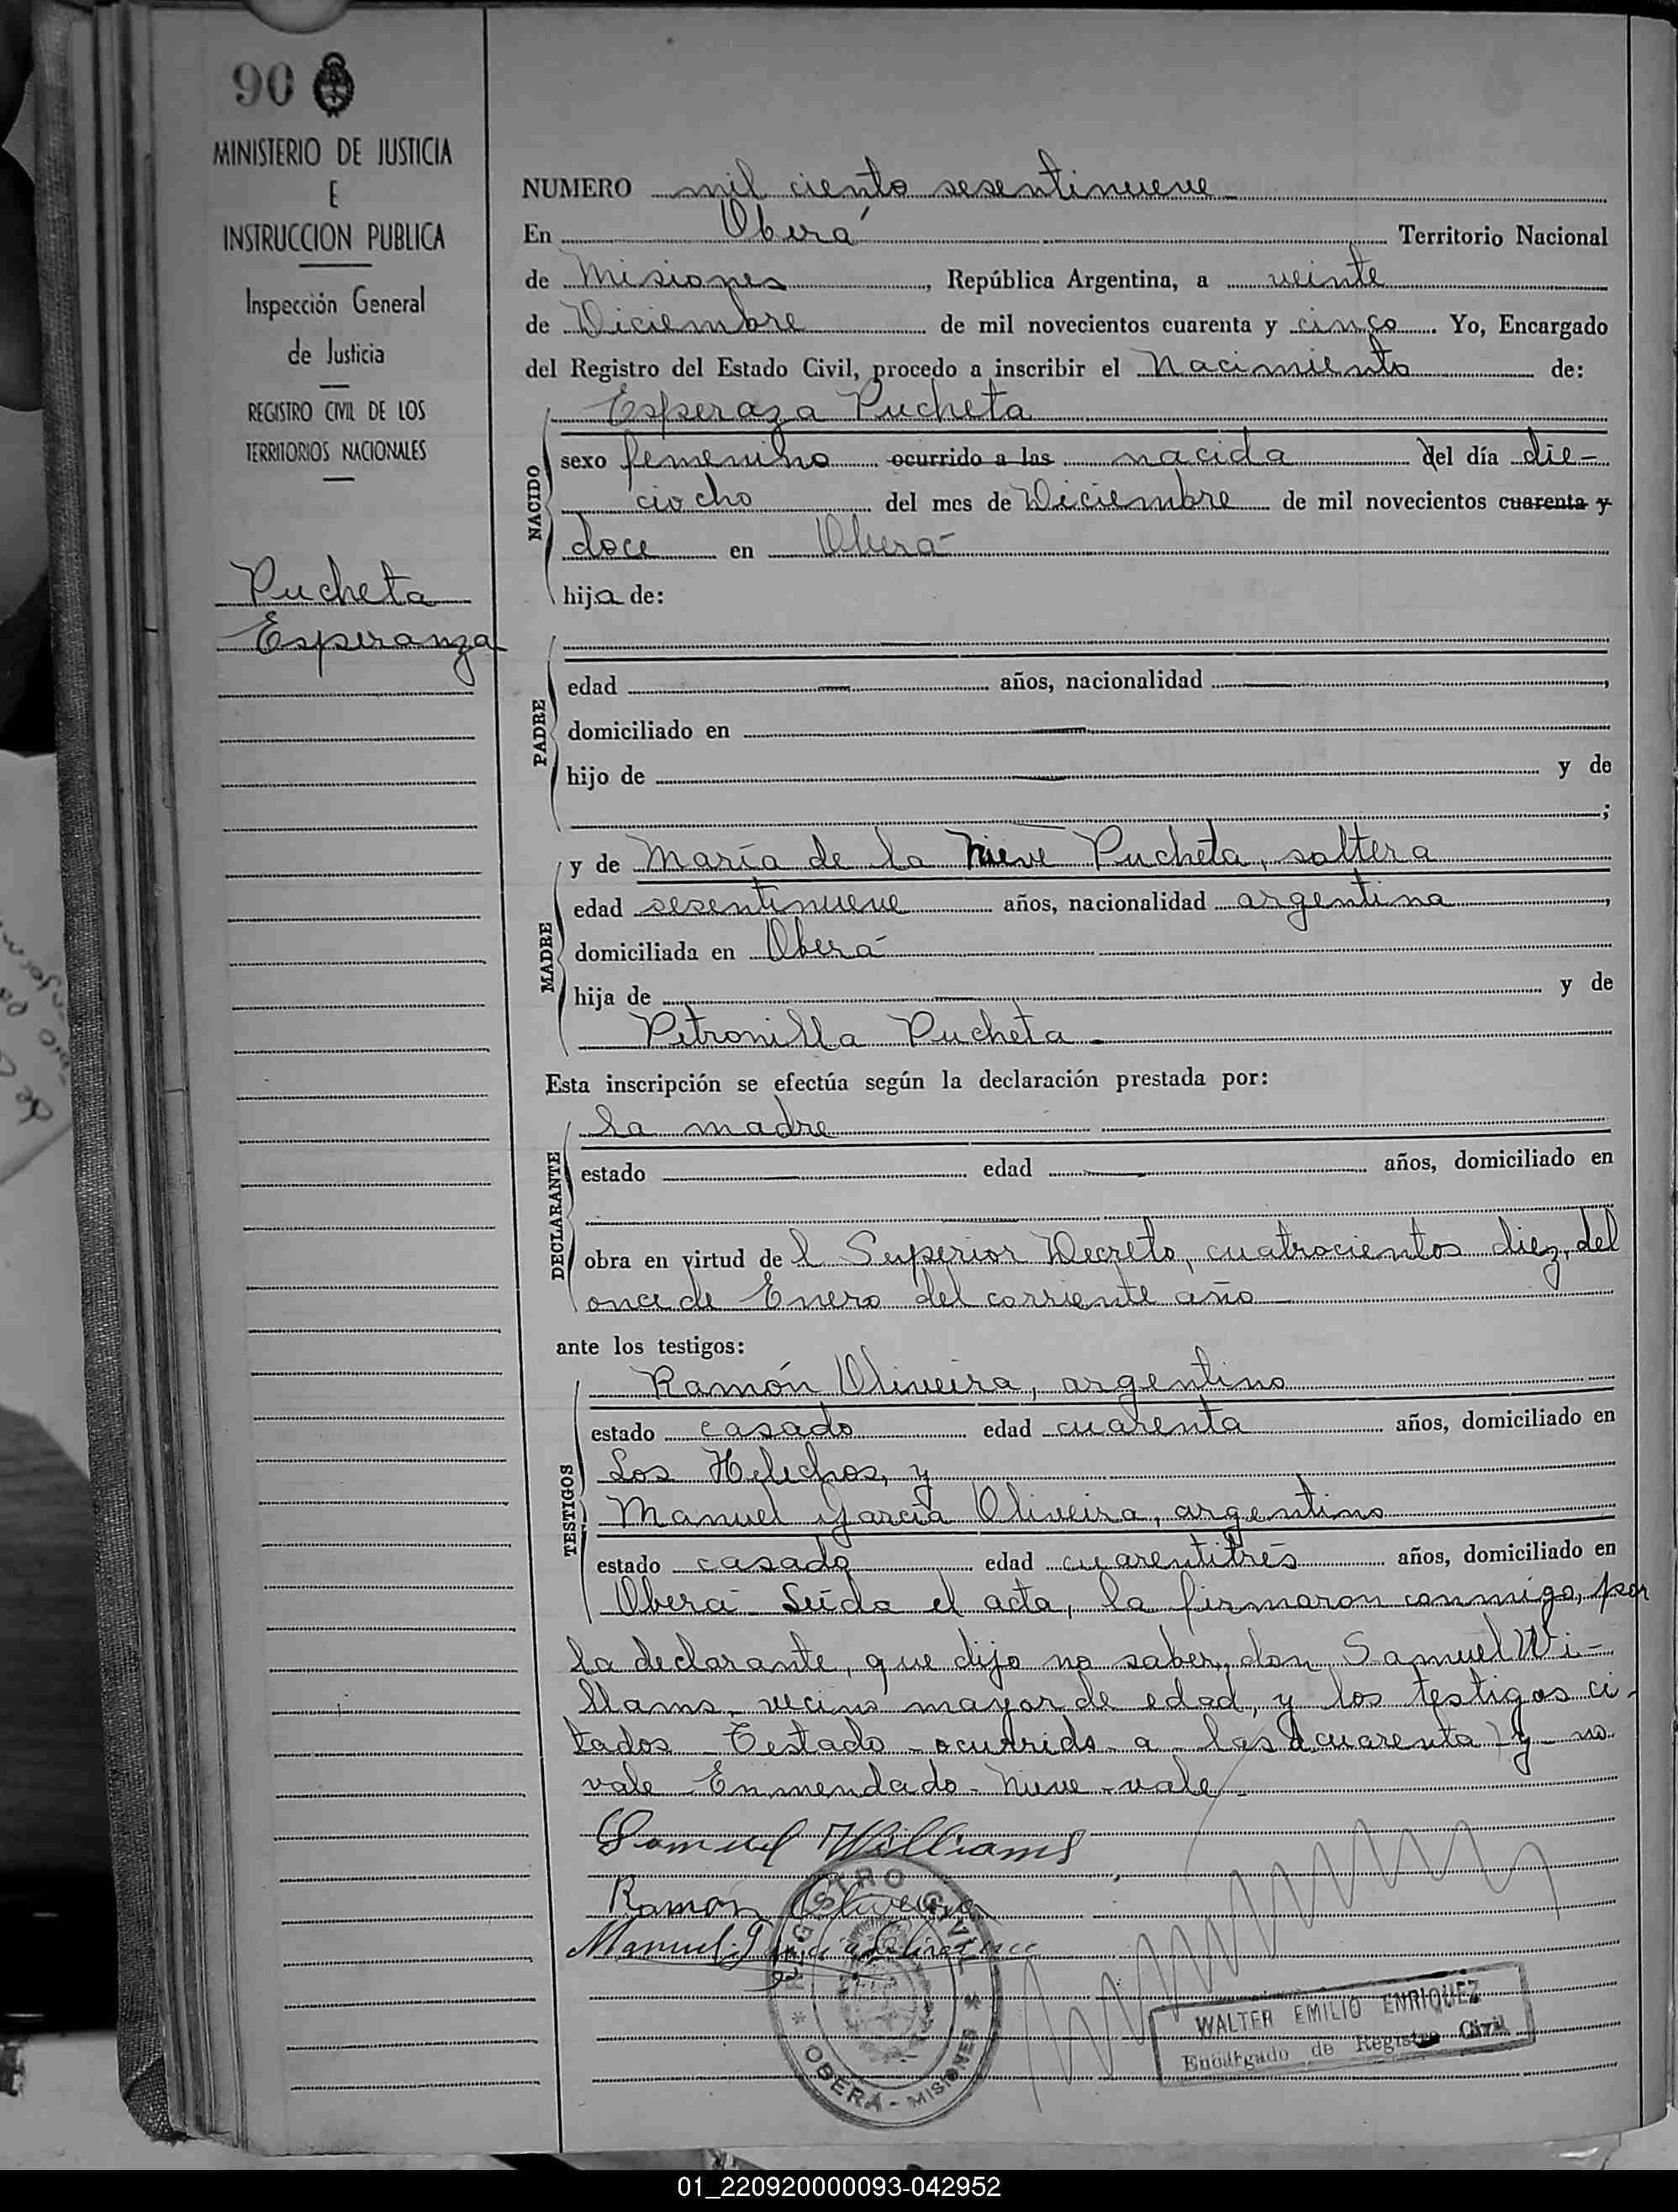 90
MINISTERIO DE JUSTICIA
E
INSTRUCCION PUBLICA
Inspección General
de Justicia
REGISTRO CIVIL DE LOS
TERRITORIOS NACIONALES
Pucheta
Esperanza
NUMERO mil ciento sesentinueve
En Oberá Territorio Nacional
de Misiones, República Argentina, a veinte
de Diciembre de mil novecientos cuarenta y cinco. Yo, Encargado
del Registro del Estado Civil, procedo a inscribir el Nacimiento de:
Esperaza Pucheta
NACIDO
sexo femenino ocurrido a las nacida del día die-
ciocho del mes de Diciembre de mil novecientos cuarenta y
doce en Oberá
hija de:
PADRE
edad — años, nacionalidad —,
domiciliado en —
hijo de — y de
;
MADRE
y de María de la Nieve Pucheta, soltera
edad sesentinueve años, nacionalidad argentina,
domiciliada en Oberá
hija de — y de
Petronilla Pucheta.
Esta inscripción se efectúa según la declaración prestada por:
DECLARANTE
la madre
estado — edad — años, domiciliado en
obra en virtud de l Superior Decreto, cuatrocientos diez, del
once de Enero del corriente año
ante los testigos:
TESTIGOS
Ramón Oliveira, argentino
estado casado edad cuarenta años, domiciliado en
Los Helechos, y
Manuel García Oliveira, argentino
estado casado edad cuarentitrés años, domiciliado en
Oberá- Leída el acta, la firmaron conmigo, por
la declarante, que dijo no saber, don Samuel Wi-
llams, vecino mayor de edad, y los testigos ci-
tados- Testado- ocurrido a las cuarenta y- no
vale Enmendado- Nieve- vale.
Samuel Williams
Ramon Oliveira
Manuel
REGISTRO CIVIL
* OBERÁ - MISIONES *
WALTER EMILIO ENRIQUEZ
Encargado de Registro Civil
01_220920000093-042952